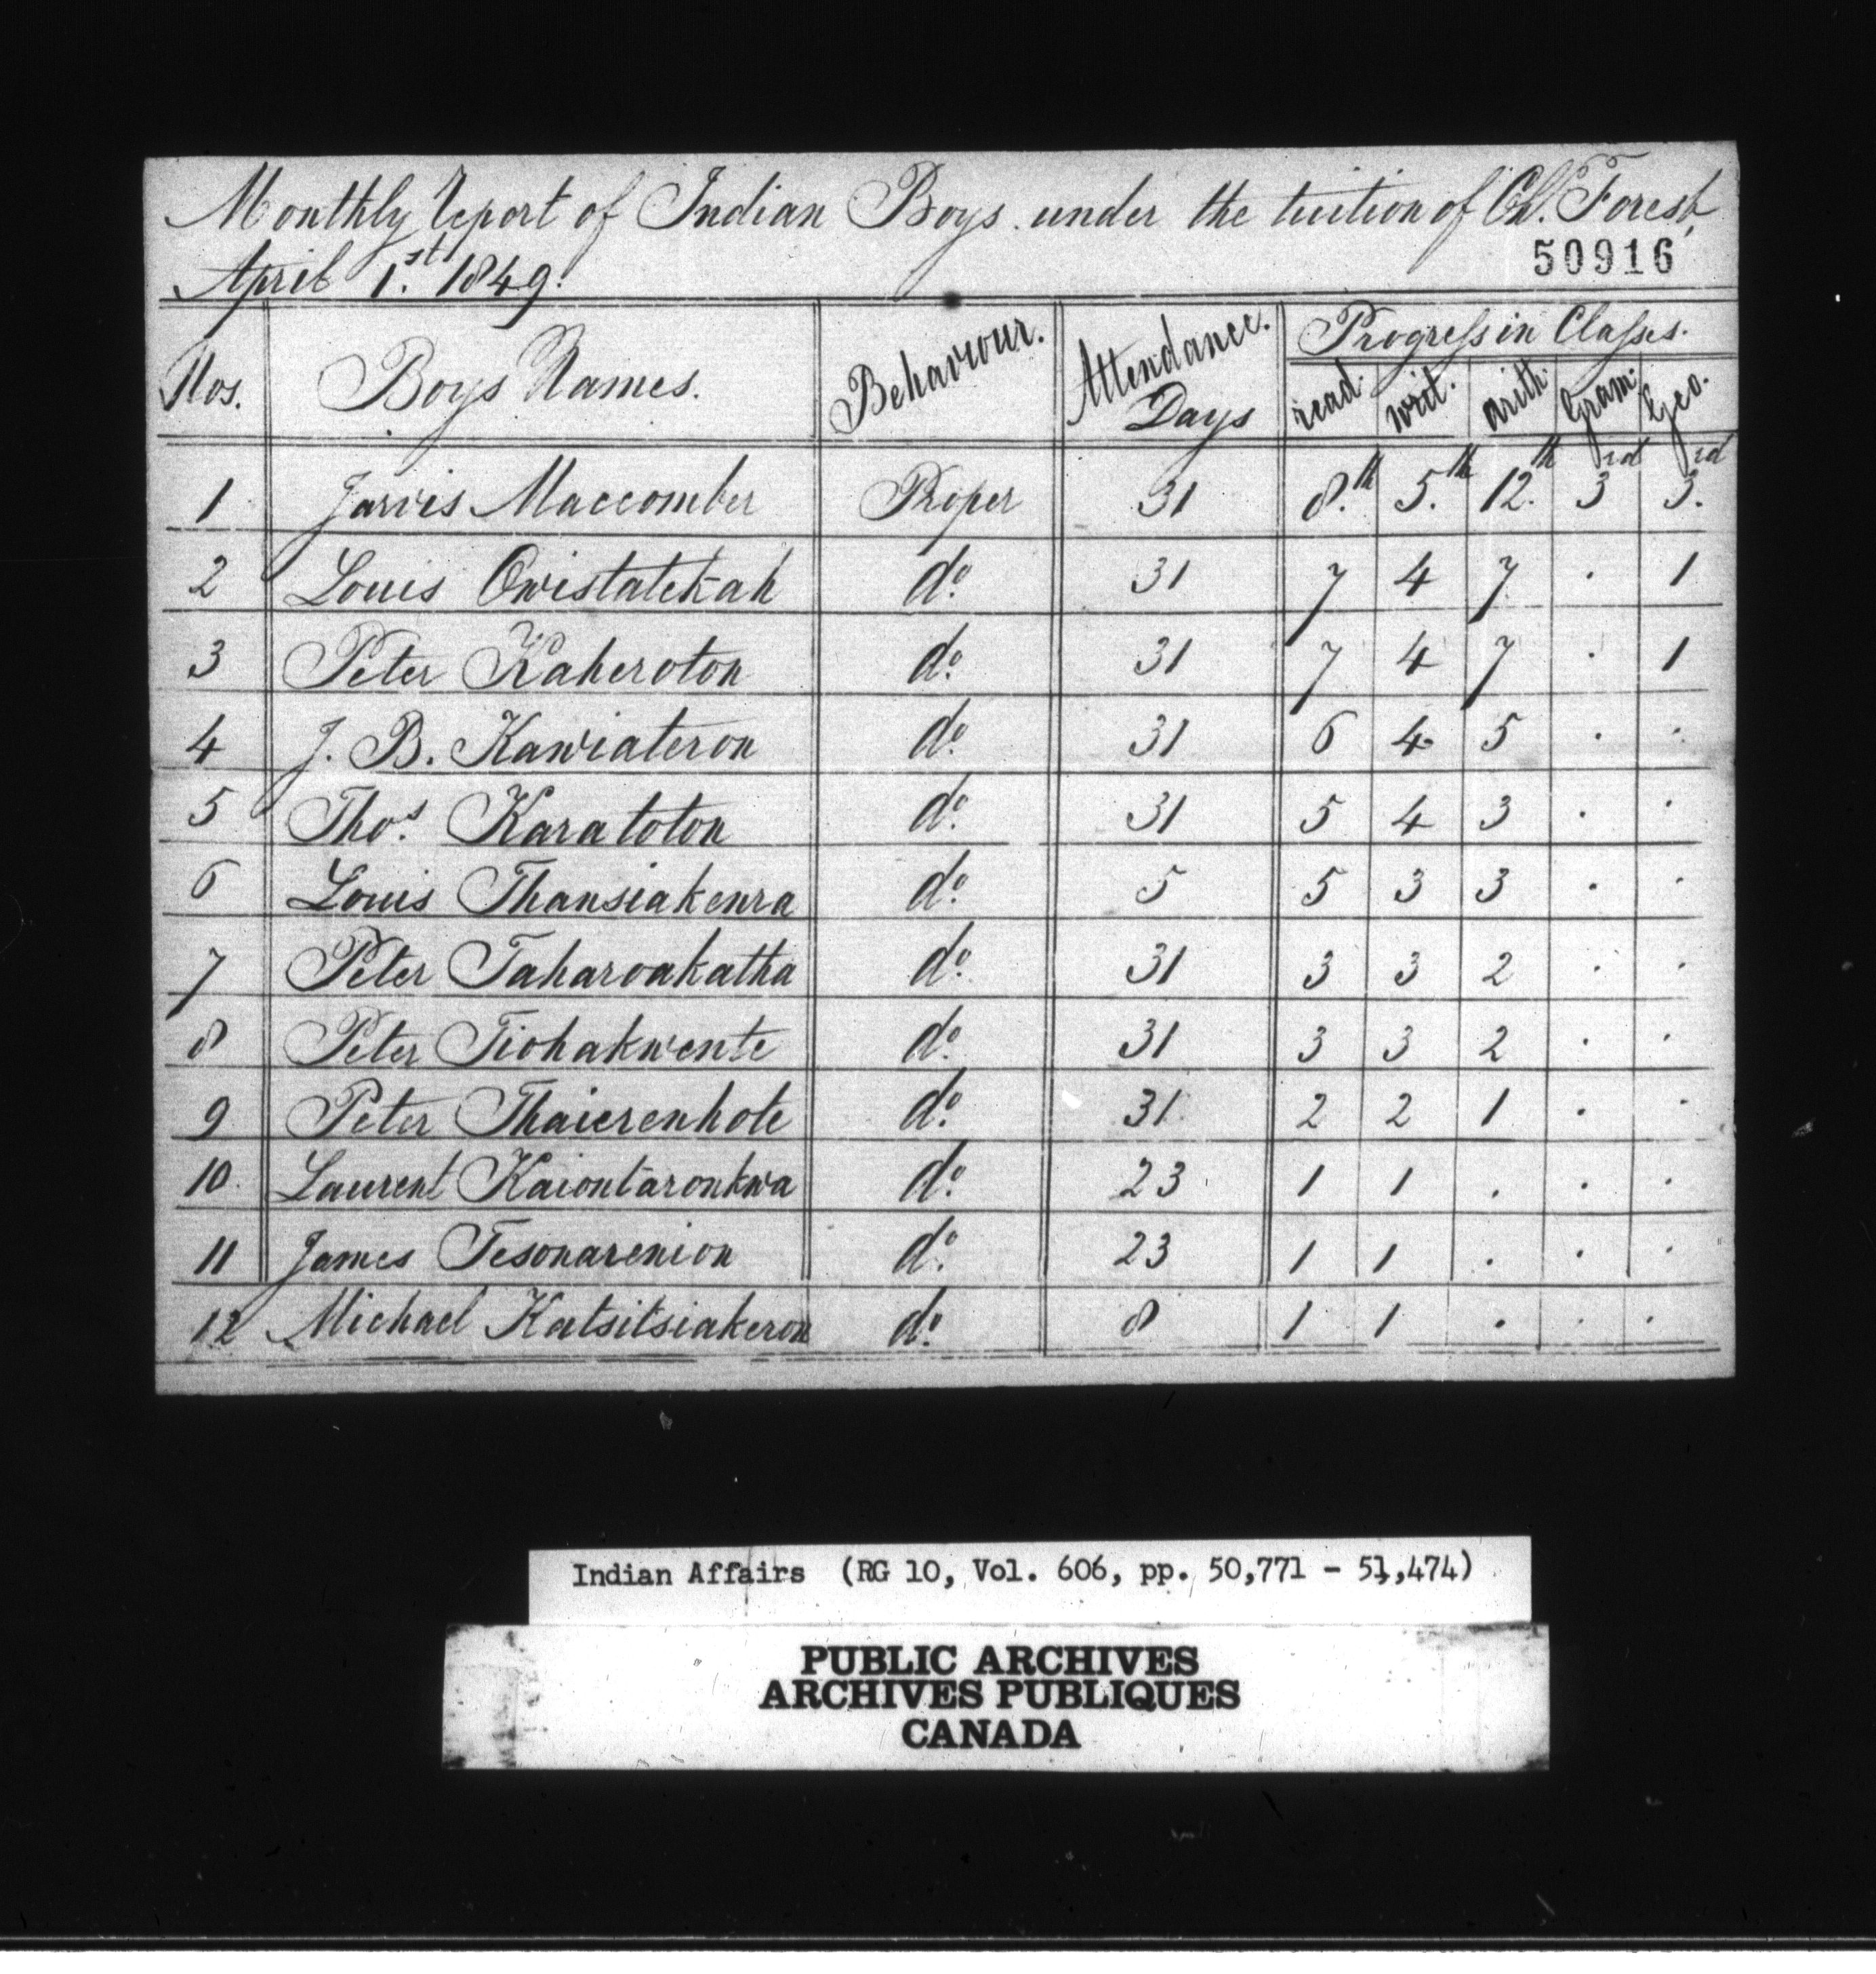 Monthly report of Indian Boys under the tuition of Chs. Forest,
50916
April 1.st 1849.
Nos. Boys Names. Behaviour. Attendance. Days Progress in Classes.
read. writ. arith. Gram. Geo.
1 Jarvis Maccomber Proper 31 8.th 5.th 12.th 3rd 3.rd
2 Louis Owistatekah do. 31 7 4 7 . 1
3 Peter Kaheroton do. 31 7 4 7 . 1
4 J. B. Kawiateron do. 31 6 4 5 . .
5 Thos. Karatoton do. 31 5 4 3 . .
6 Louis Thansiakenra do. 5 5 3 3 . .
7 Peter Taharoakatha do. 31 3 3 2 . .
8 Peter Tiohakwente do. 31 3 3 2 . .
9 Peter Thaierenhote do. 31 2 2 1 . .
10. Laurent Kaiontaronkwa do. 23 1 1 . . .
11 James Tesonarenion do. 23 1 1 . . .
12 Michael Katsitsiakeron do. 8 1 1 . . .
Indian Affairs (RG 10, Vol. 606, pp. 50,771 - 51,474)
PUBLIC ARCHIVES
ARCHIVES PUBLIQUES
CANADA